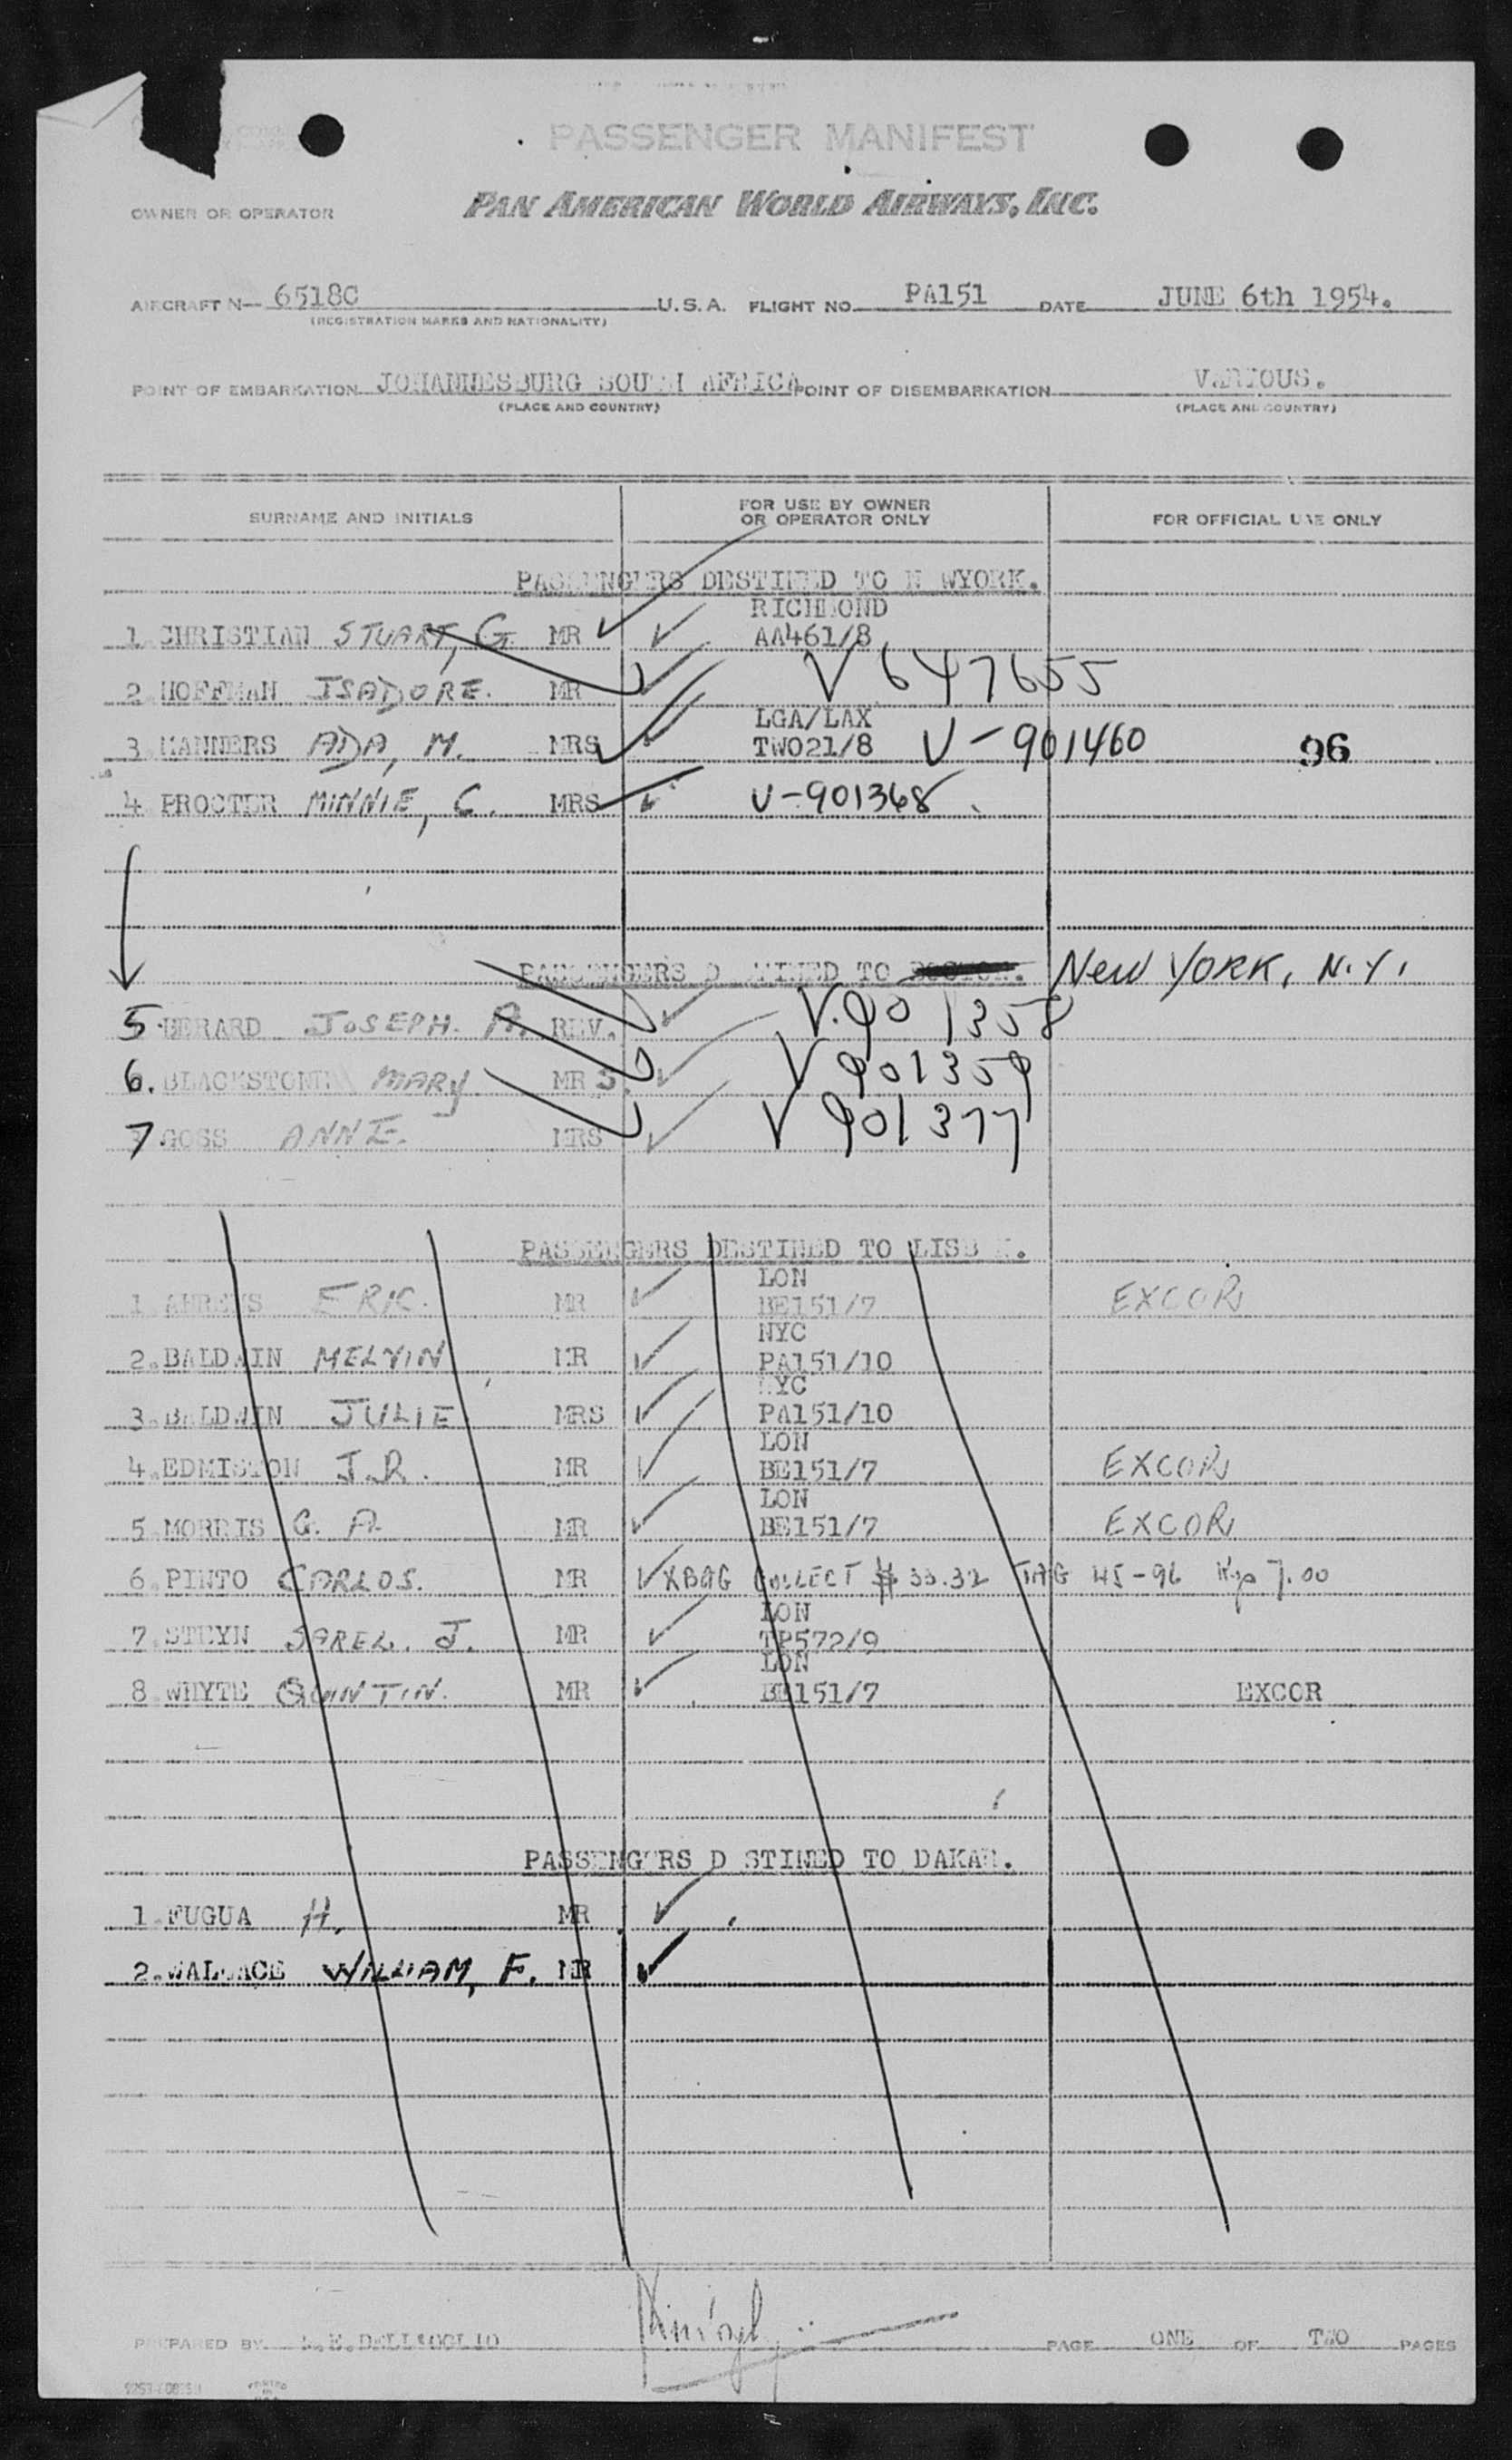 PASSENGER MANIFEST
OWNER OR OPERATOR PAN AMERICAN WORLD AIRWAYS, INC.
AIRCRAFT N— 6518C U.S.A. FLIGHT NO. PA151 DATE JUNE 6th 1954.
(REGISTRATION MARKS AND NATIONALITY)
POINT OF EMBARKATION JOHANNESBURG SOUTH AFRICA POINT OF DISEMBARKATION VARIOUS.
(PLACE AND COUNTRY) (PLACE AND COUNTRY)
SURNAME AND INITIALS FOR USE BY OWNER OR OPERATOR ONLY FOR OFFICIAL USE ONLY
PASSENGERS DESTINED TO N WYORK.
RICHMOND
1.CHRISTIAN STUART, G. MR AA461/8
2.HOFFMAN ISADORE. MR V 647655
LGA/LAX
3.MANNERS ADA, M. MRS TWO21/8 V-901460 96
4 PROCTER MINNIE, C. MRS V-901368
PASSENGERS D TINED TO NEW YORK, N.Y.
5 BERARD JOSEPH. A. REV. V.901358
6. BLACKSTONE MARY MRS. V 901359
7 GOSS ANNE. MRS V 901377
PASSENGERS DESTINED TO LISB N.
LON
1.AHRENS ERIC. MR BE151/7 EXCOR
NYC
2.BALDWIN MELVIN MR PA151/10
NYC
3.BALDWIN JULIE MRS PA151/10
LON
4.EDMISTON J.R. MR BE151/7 EXCOR
LON
5.MORRIS G. A. MR BE151/7 EXCOR
6.PINTO CARLOS. MR XBAG COLLECT $ 33.32 TAG 45-96 Kgs 7.00
LON
7.STEYN SAREL. J. MR TP572/9
LON
8.WHYTE QUINTIN. MR BE151/7 EXCOR
PASSENGERS D STINED TO DAKAR.
1.FUGUA H. MR
2.WALLACE WILLIAM, F. MR
PREPARED BY PAGE ONE OF TWO PAGES